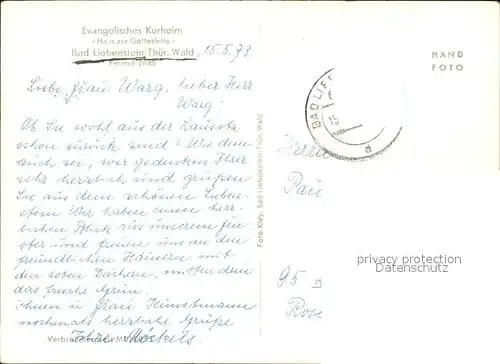 Evangelisches Kurheim
„Haus zur Gotteshilfe“
Bad Liebenstein/Thür. Wald 15.5.73
Fernruf 2686
HAND
FOTO
Liebe Frau Warg, lieber Herr
Warg!
Ob Sie wohl aus der Lausitz
schon zurück sind? Wie dem
auch sei, wir gedenken Ihrer
sehr herzlich und grüßen
Sie aus dem schönen Lieben-
stein. Wir haben einen herr-
lichen Blick aus unserem Fen-
ster und freuen uns an den
freundlichen Häusern mit
den roten Dächern, mitten drin
das frische Grün.
Ihnen u. Frau Kunstmann
nochmals herzliche Grüße
Ihre Möckels.
BAD LIE
15
a
Herrn
Pau
95
Rose
Foto-Kley, Bad Liebenstein/Thür. Wald
privacy protection
Datenschutz